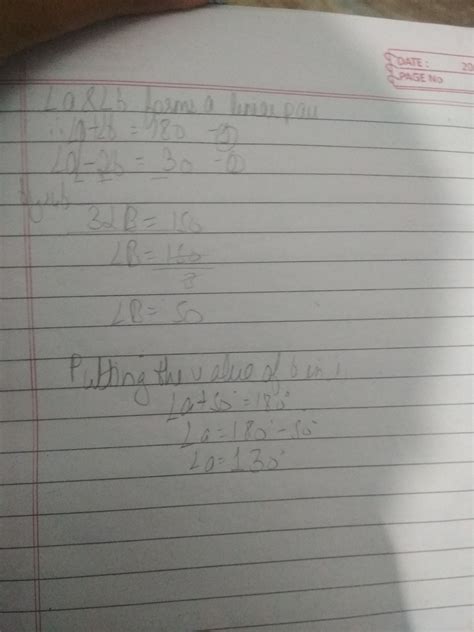 DATE : 20
PAGE No
∠a & ∠b forms a linear pair
∴ ∠a+∠b = 180 - ①
∠a - 2b = 30 - ②
By sub
3∠B = 150
∠B = 150
3
∠B = 50
Putting the value of b in 1.
∠a + 50° = 180°
∠a = 180° - 50°
∠a = 130°